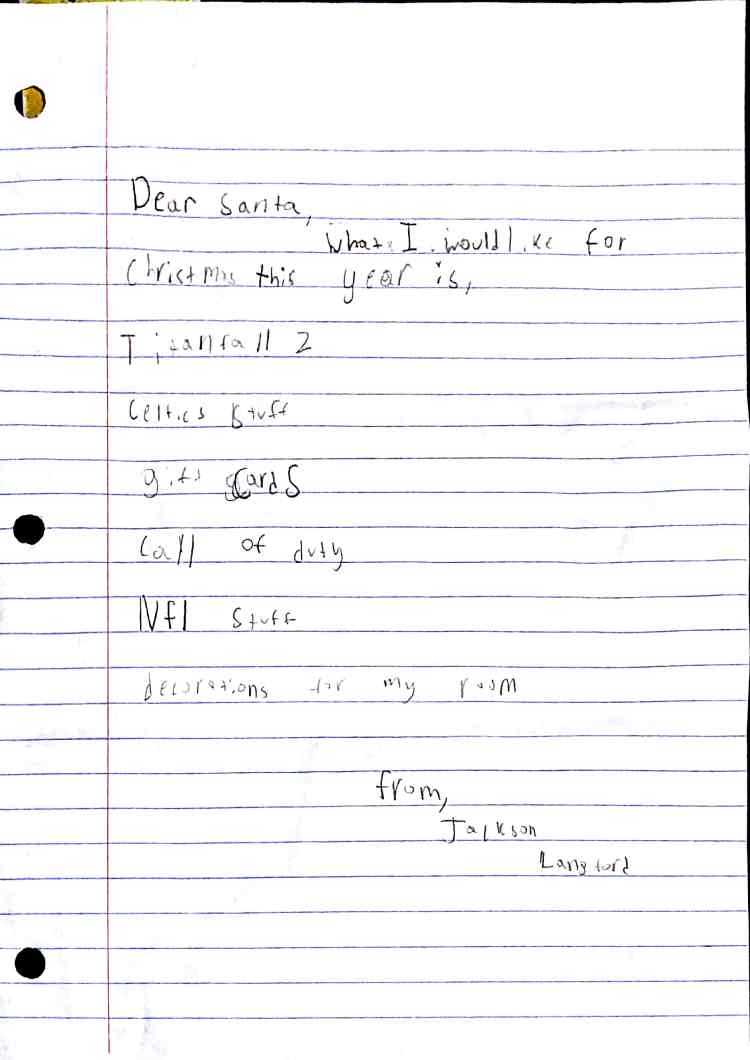 Dear Santa,
What I would like for
Christmas this year is,
Titanfall 2
Celtics stuff
gift cards
Call of duty
Nfl stuff
decorations for my room
from,
Jackson
Langford